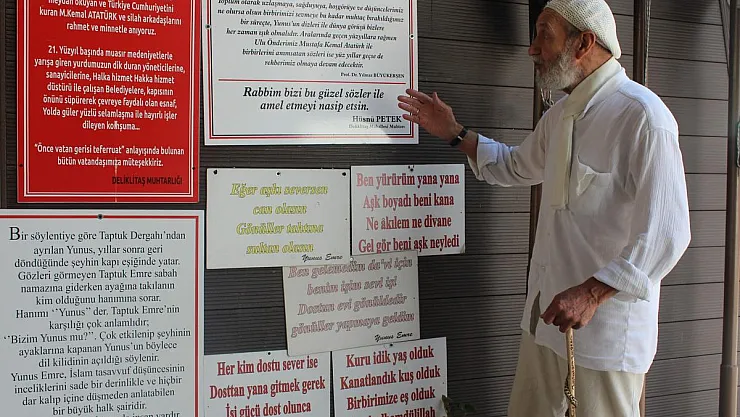 meydan okuyan ve Türkiye Cumhuriyetini
kuran M.Kemal ATATÜRK ve silah arkadaşlarını
rahmet ve minnetle anıyoruz.
21. Yüzyıl başında muasır medeniyetlerle
yarışa giren yurdumuzun dik duran yöneticilerine,
sanayicilerine, Halka hizmet Hakka hizmet
düstürü ile çalışan Belediyelere, kapısının
önünü süpürerek çevreye faydalı olan esnaf,
Yolda güler yüzlü selamlaşma ile hayırlı işler
dileyen koñuşma...
"Önce vatan gerisi teferruat" anlayışında bulunan
bütün vatandaşımıza müteşekkiriz.
DELİKLİTAŞ MUHTARLIĞI
toplum olarak uzlaşmaya, sağduyuya, hoşgörüye ve düşüncelerimiz
ne olursa olsun birbirimizi sevmeye bu kadar muhtaç bırakıldığımız
bir süreçte, Yunus'un dizleri ile dünya görüşü bizlere
her zaman ışık olmalıdır. Aralarında geçen yüzyıllara rağmen
Ulu Önderimiz Mustafa Kemal Atatürk ile
birbirlerini anımsatan sözleri ise yüz yıllar geçse de
rehberimiz olmaya devam edecektir.
Prof. Dr. Yılmaz BÜYÜKERŞEN
Rabbim bizi bu güzel sözler ile
amel etmeyi nasip etsin.
Hüsnü PETEK
Deliklitaş Mahallesi Muhtarı
Eğer aşkı seversen
can olasın
Gönüller tahtına
sultan olasın
Yunus Emre
Ben yürürüm yana yana
Aşk boyadı beni kana
Ne âkılem ne divane
Gel gör beni aşk neyledi
Ben gelmedim da'vi için
benim işim sevi içi
Dostan evi gönüldedir
gönüller yapmaya geldim
Yunus Emre
Bir söylentiye göre Taptuk Dergahı'ndan
ayrılan Yunus, yıllar sonra geri
döndüğünde şeyhin kapı eşiğinde yatar.
Gözleri görmeyen Taptuk Emre sabah
namazına giderken ayağına takılanın
kim olduğunu hanımına sorar.
Hanımı ''Yunus'' der. Taptuk Emre'nin
karşılığı çok anlamlıdır;
''Bizim Yunus mu?''. Çok etkilenip şeyhinin
ayaklarına kapanan Yunus'un böylece
dil kilidinin açıldığı söylenir.
Yunus Emre, İslam tasavvuf düşüncesinin
inceliklerini sade bir derinlikle ve hiçbir
dar kalıp içine düşmeden anlatabilen
bir büyük halk şairidir.
Her kim dostu sever ise
Dosttan yana gitmek gerek
İşi gücü dost olunca
Kuru idik yaş olduk
Kanatlandık kuş olduk
Birbirimize eş olduk